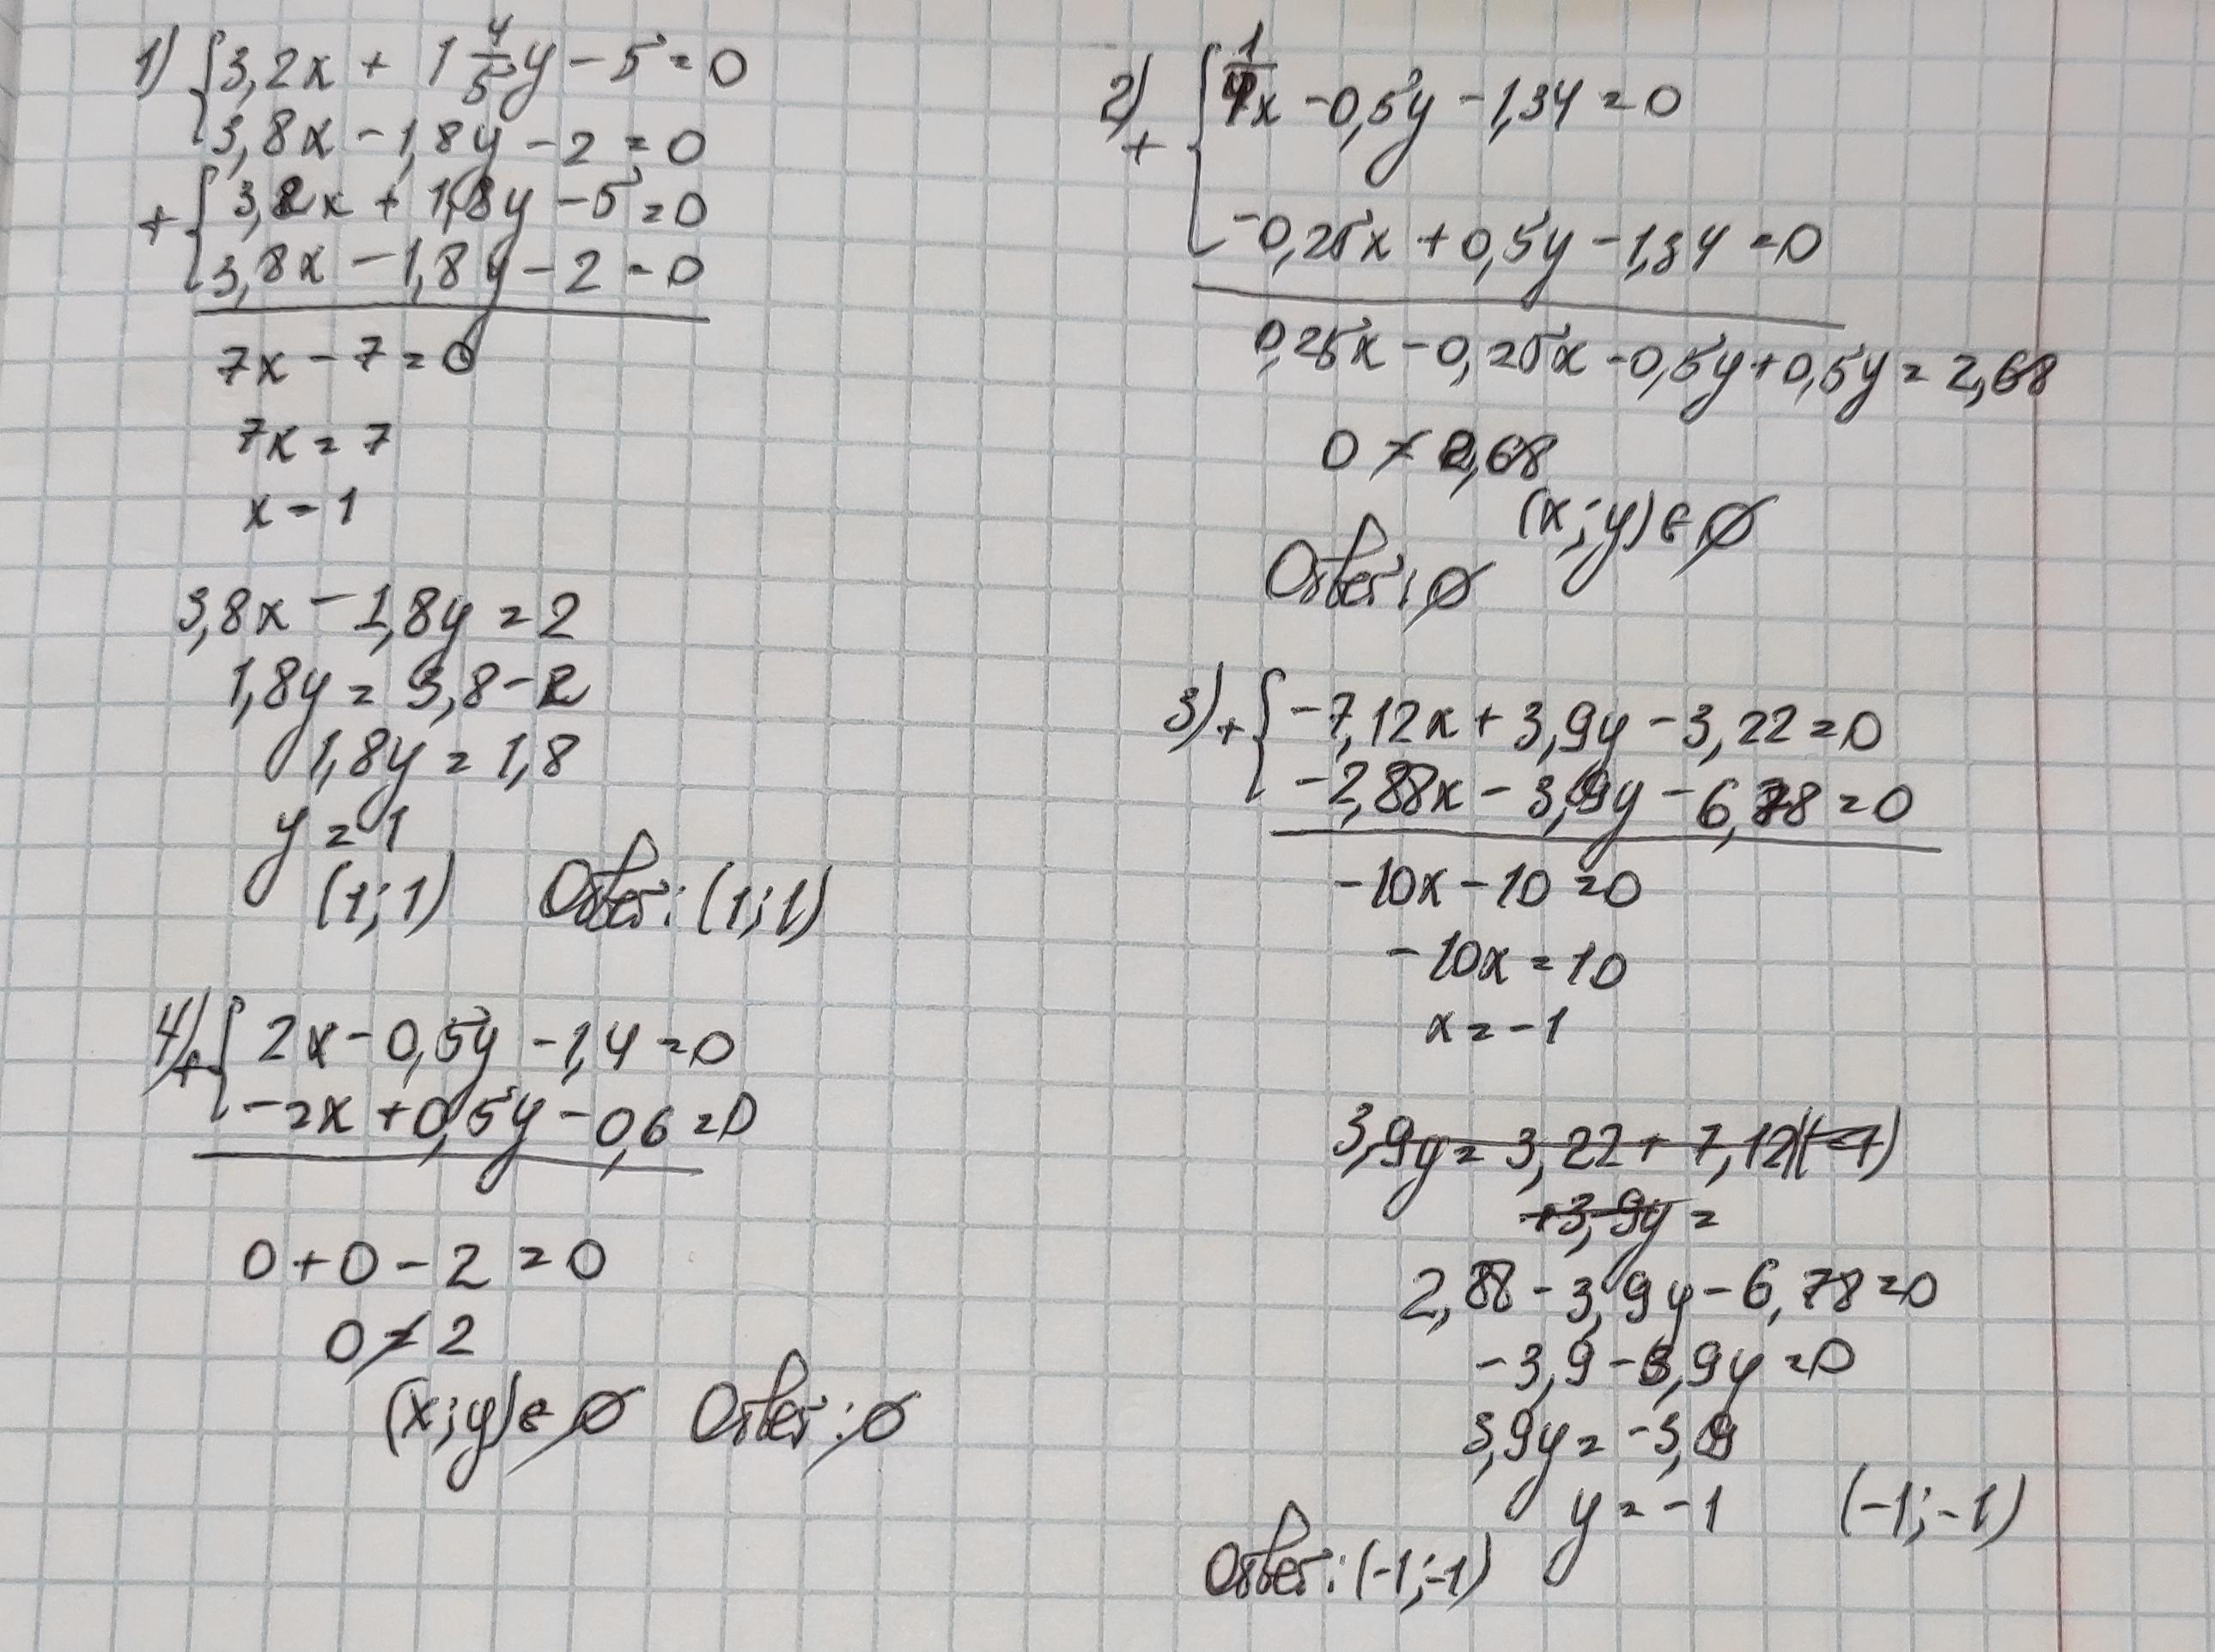 1) { 3,2x + 1 4/5 y - 5 = 0
3,8x - 1,8y - 2 = 0
+ { 3,2x + 1,8y - 5 = 0
3,8x - 1,8y - 2 = 0
7x - 7 = 0
7x = 7
x = 1
3,8x - 1,8y = 2
1,8y = 3,8 - 2
1,8y = 1,8
y = 1
(1; 1) Ответ: (1; 1)
2) + { 1/4 x - 0,5y - 1,34 = 0
-0,25x + 0,5y - 1,34 = 0
0,25x - 0,25x - 0,5y + 0,5y = 2,68
0 ≠ 2,68
(x; y) ∈ ∅
Ответ: ∅
3) + { -7,12x + 3,9y - 3,22 = 0
-2,88x - 3,9y - 6,78 = 0
-10x - 10 = 0
-10x = 10
x = -1
3,9y = 3,22 + 7,12(-1)
+3,9y =
2,88 - 3,9y - 6,78 = 0
-3,9 - 3,9y = 0
3,9y = -3,9
y = -1 (-1; -1)
Ответ: (-1; -1)
4) + { 2x - 0,5y - 1,4 = 0
-2x + 0,5y - 0,6 = 0
0 + 0 - 2 = 0
0 ≠ 2
(x; y) ∈ ∅ Ответ: ∅